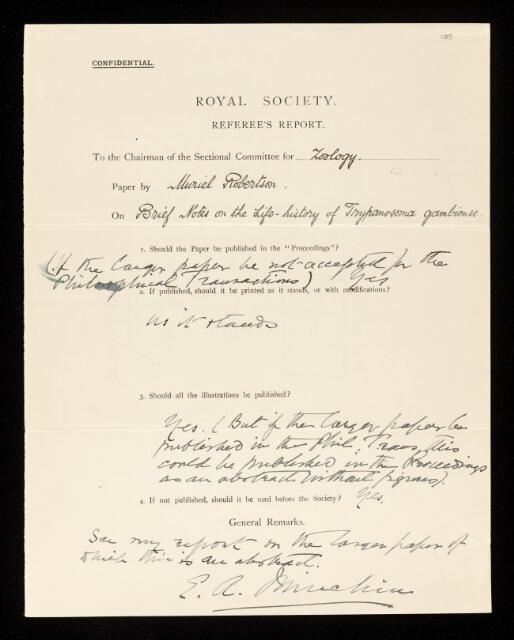 105
CONFIDENTIAL.
ROYAL SOCIETY.
REFEREE'S REPORT.
To the Chairman of the Sectional Committee for Zoology.
Paper by Muriel Robertson.
On Brief Notes on the Life-history of Trypanosoma gambiense.
1. Should the Paper be published in the "Proceedings"?
(if the larger paper be not accepted for the
Philosophical Transactions) Yes
2. If published, should it be printed as it stands, or with modifications?
as it stands
3. Should all the illustrations be published?
Yes. (But if the larger paper be
published in the Phil. Trans, this
could be published in the Proceedings
as an abstract without figures).
4. If not published, should it be read before the Society? Yes.
General Remarks.
See my report on the larger paper of
which this is an abstract.
E. A. Minchin